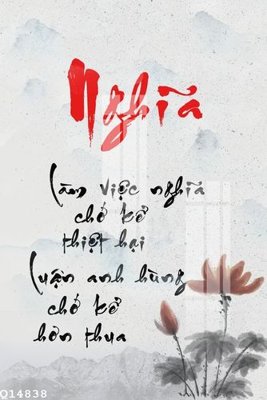 Nghĩa
Làm việc nghĩa
chớ kể
thiệt hại
Luận anh hùng
chớ kể
hơn thua
Q14838